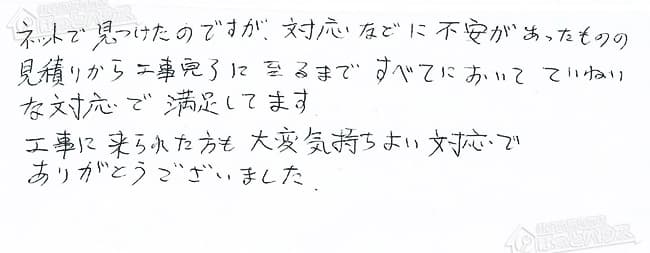 ネットで見つけたのですが、対応などに不安があったものの
見積りから工事完了に至るまですべてにおいてていねい
な対応で満足してます
工事に来られた方も大変気持ちよい対応で
ありがとうございました。